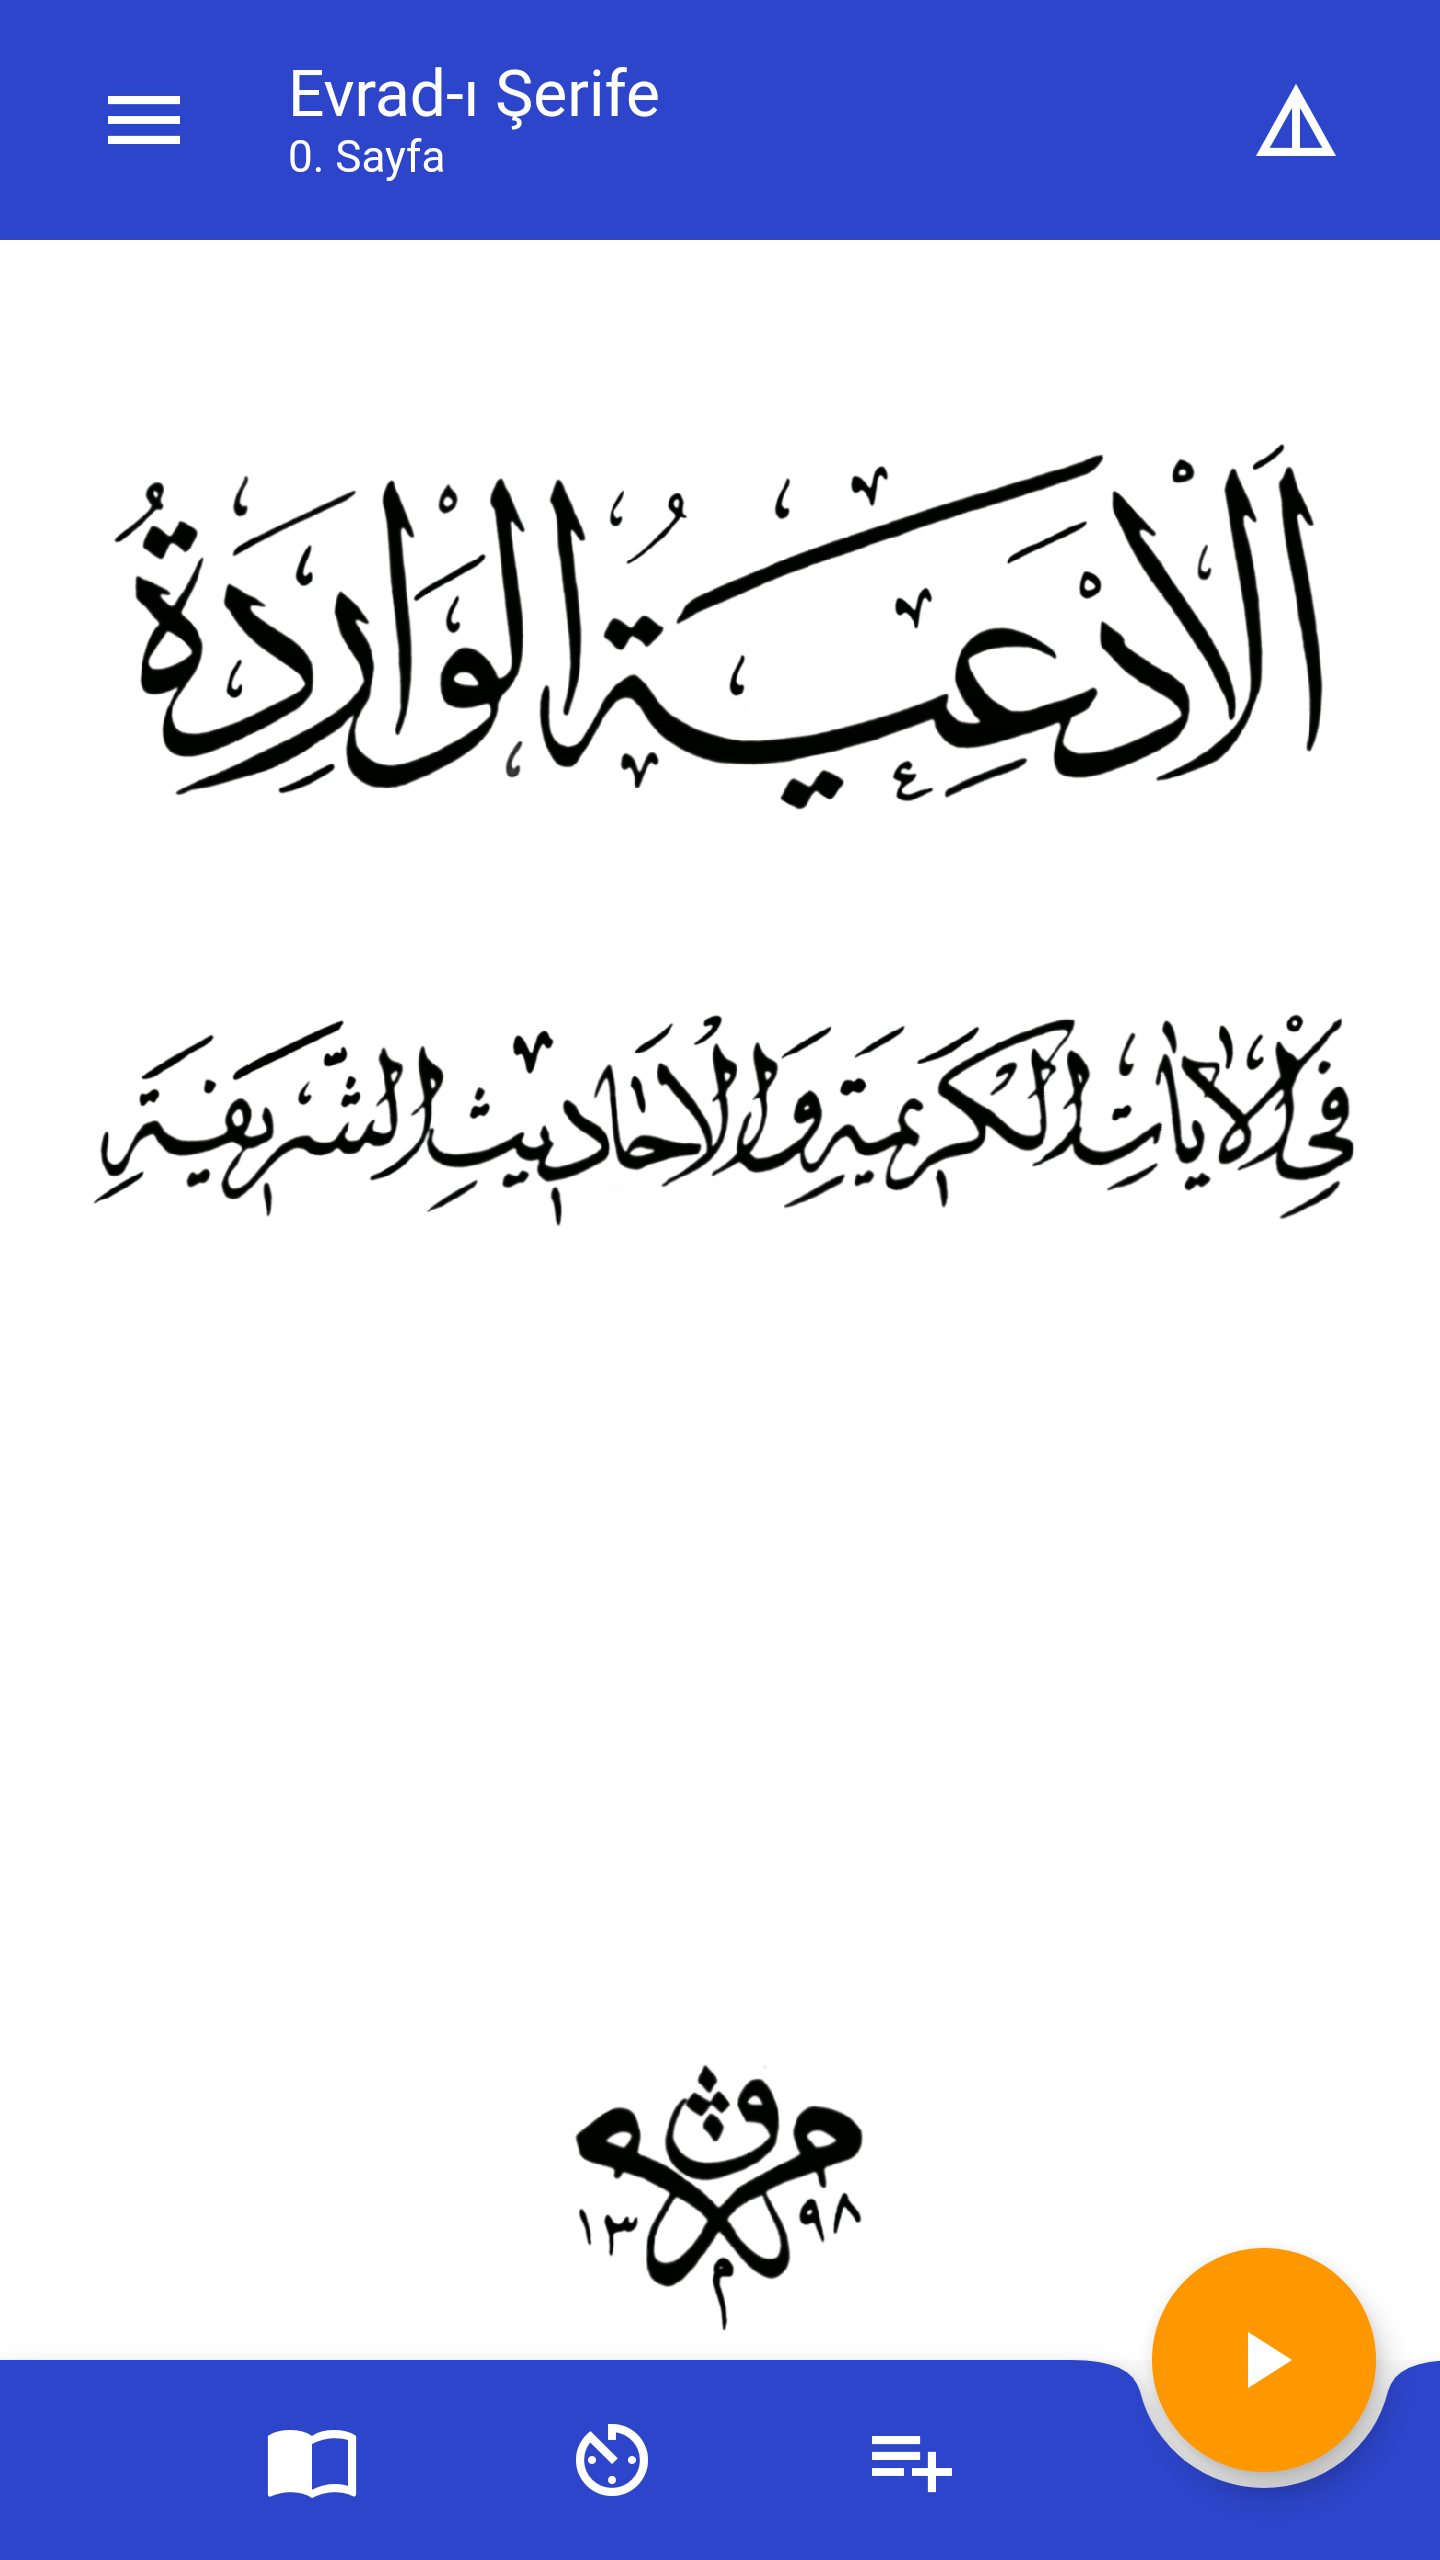 Evrad-ı Şerife
0. Sayfa
اَلْاَدْعِيَةُ الْوَارِدَةُ
فِي الْاٰيَاتِ الْكَرِيمَةِ وَالْاَحَادِيثِ الشَّرِيفَةِ
١٣ ٩٨